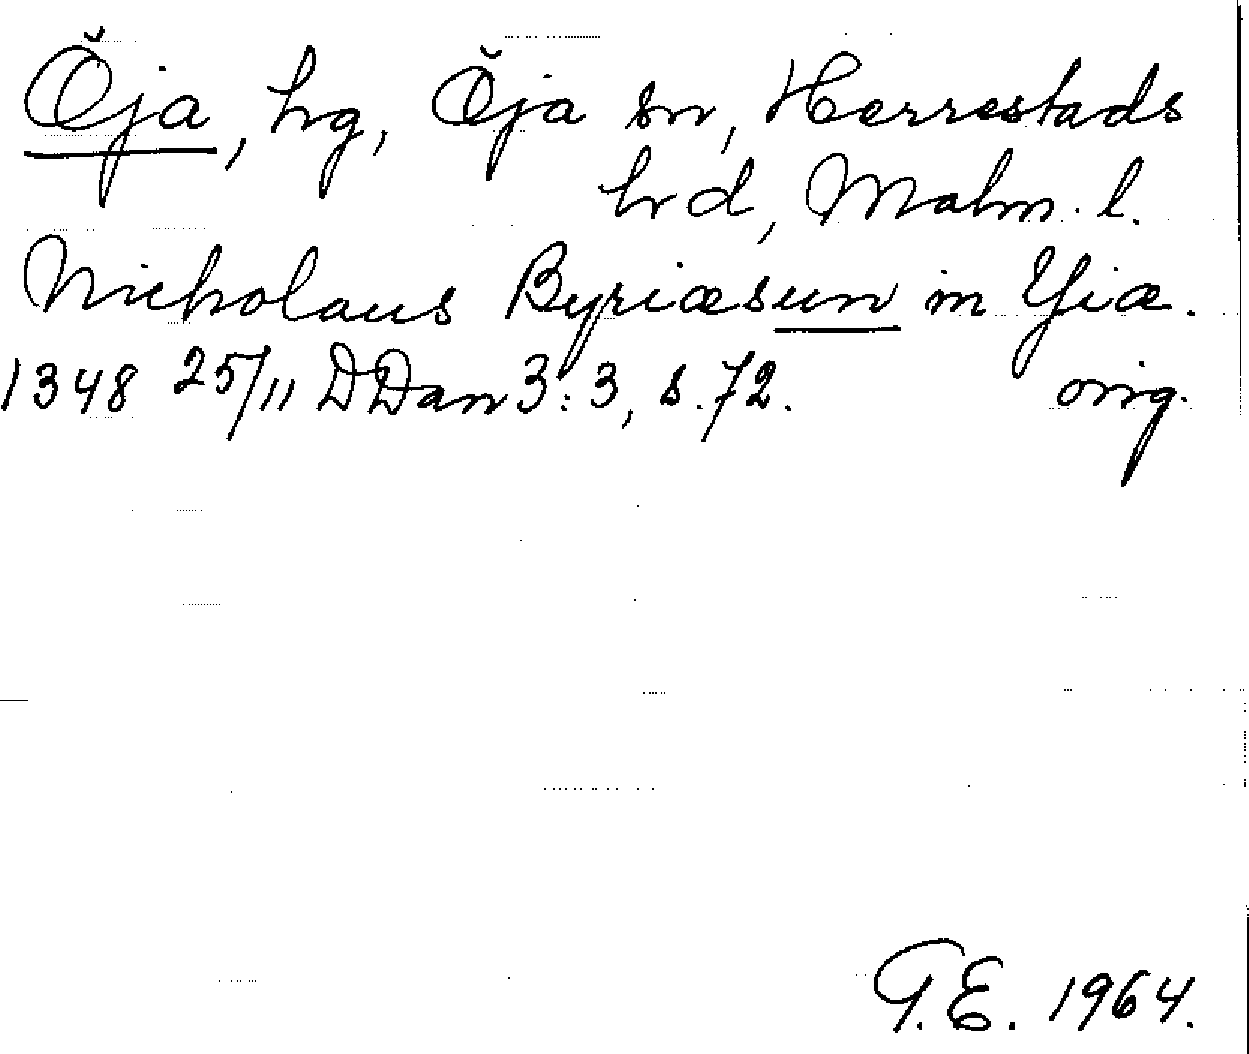 Öja, hg, Öja sn, Herrestads
hrd, Malm. l.
Nicholaus Byriæsun in Yiæ.
1348 25/11 DDan 3:3, s. 72. orig.
G.E. 1964.